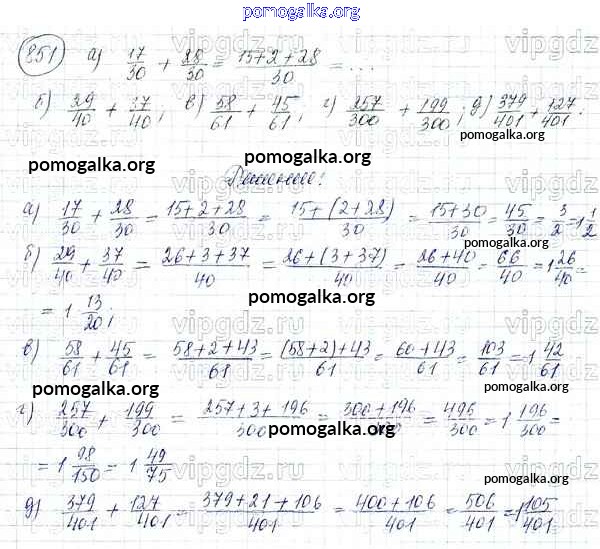 pomogalka.org
851 а) 17/30 + 28/30 = 15+2+28/30 = ...
б) 29/40 + 37/40; в) 58/61 + 45/61; г) 257/300 + 199/300; д) 379/401 + 127/401.
pomogalka.org pomogalka.org pomogalka.org
Решение!
а) 17/30 + 28/30 = 15+2+28/30 = 15+(2+28)/30 = 15+30/30 = 45/30 = 3/2 = 1 1/2
pomogalka.org
б) 29/40 + 37/40 = 26+3+37/40 = 26+(3+37)/40 = 26+40/40 = 66/40 = 1 26/40 =
= 1 13/20;
pomogalka.org
в) 58/61 + 45/61 = 58+2+43/61 = (58+2)+43/61 = 60+43/61 = 103/61 = 1 42/61
pomogalka.org pomogalka.org
г) 257/300 + 199/300 = 257+3+196/300 = 300+196/300 = 496/300 = 1 196/300 =
pomogalka.org
= 1 98/150 = 1 49/75
pomogalka.org
д) 379/401 + 127/401 = 379+21+106/401 = 400+106/401 = 506/401 = 1 105/401
pomogalka.org